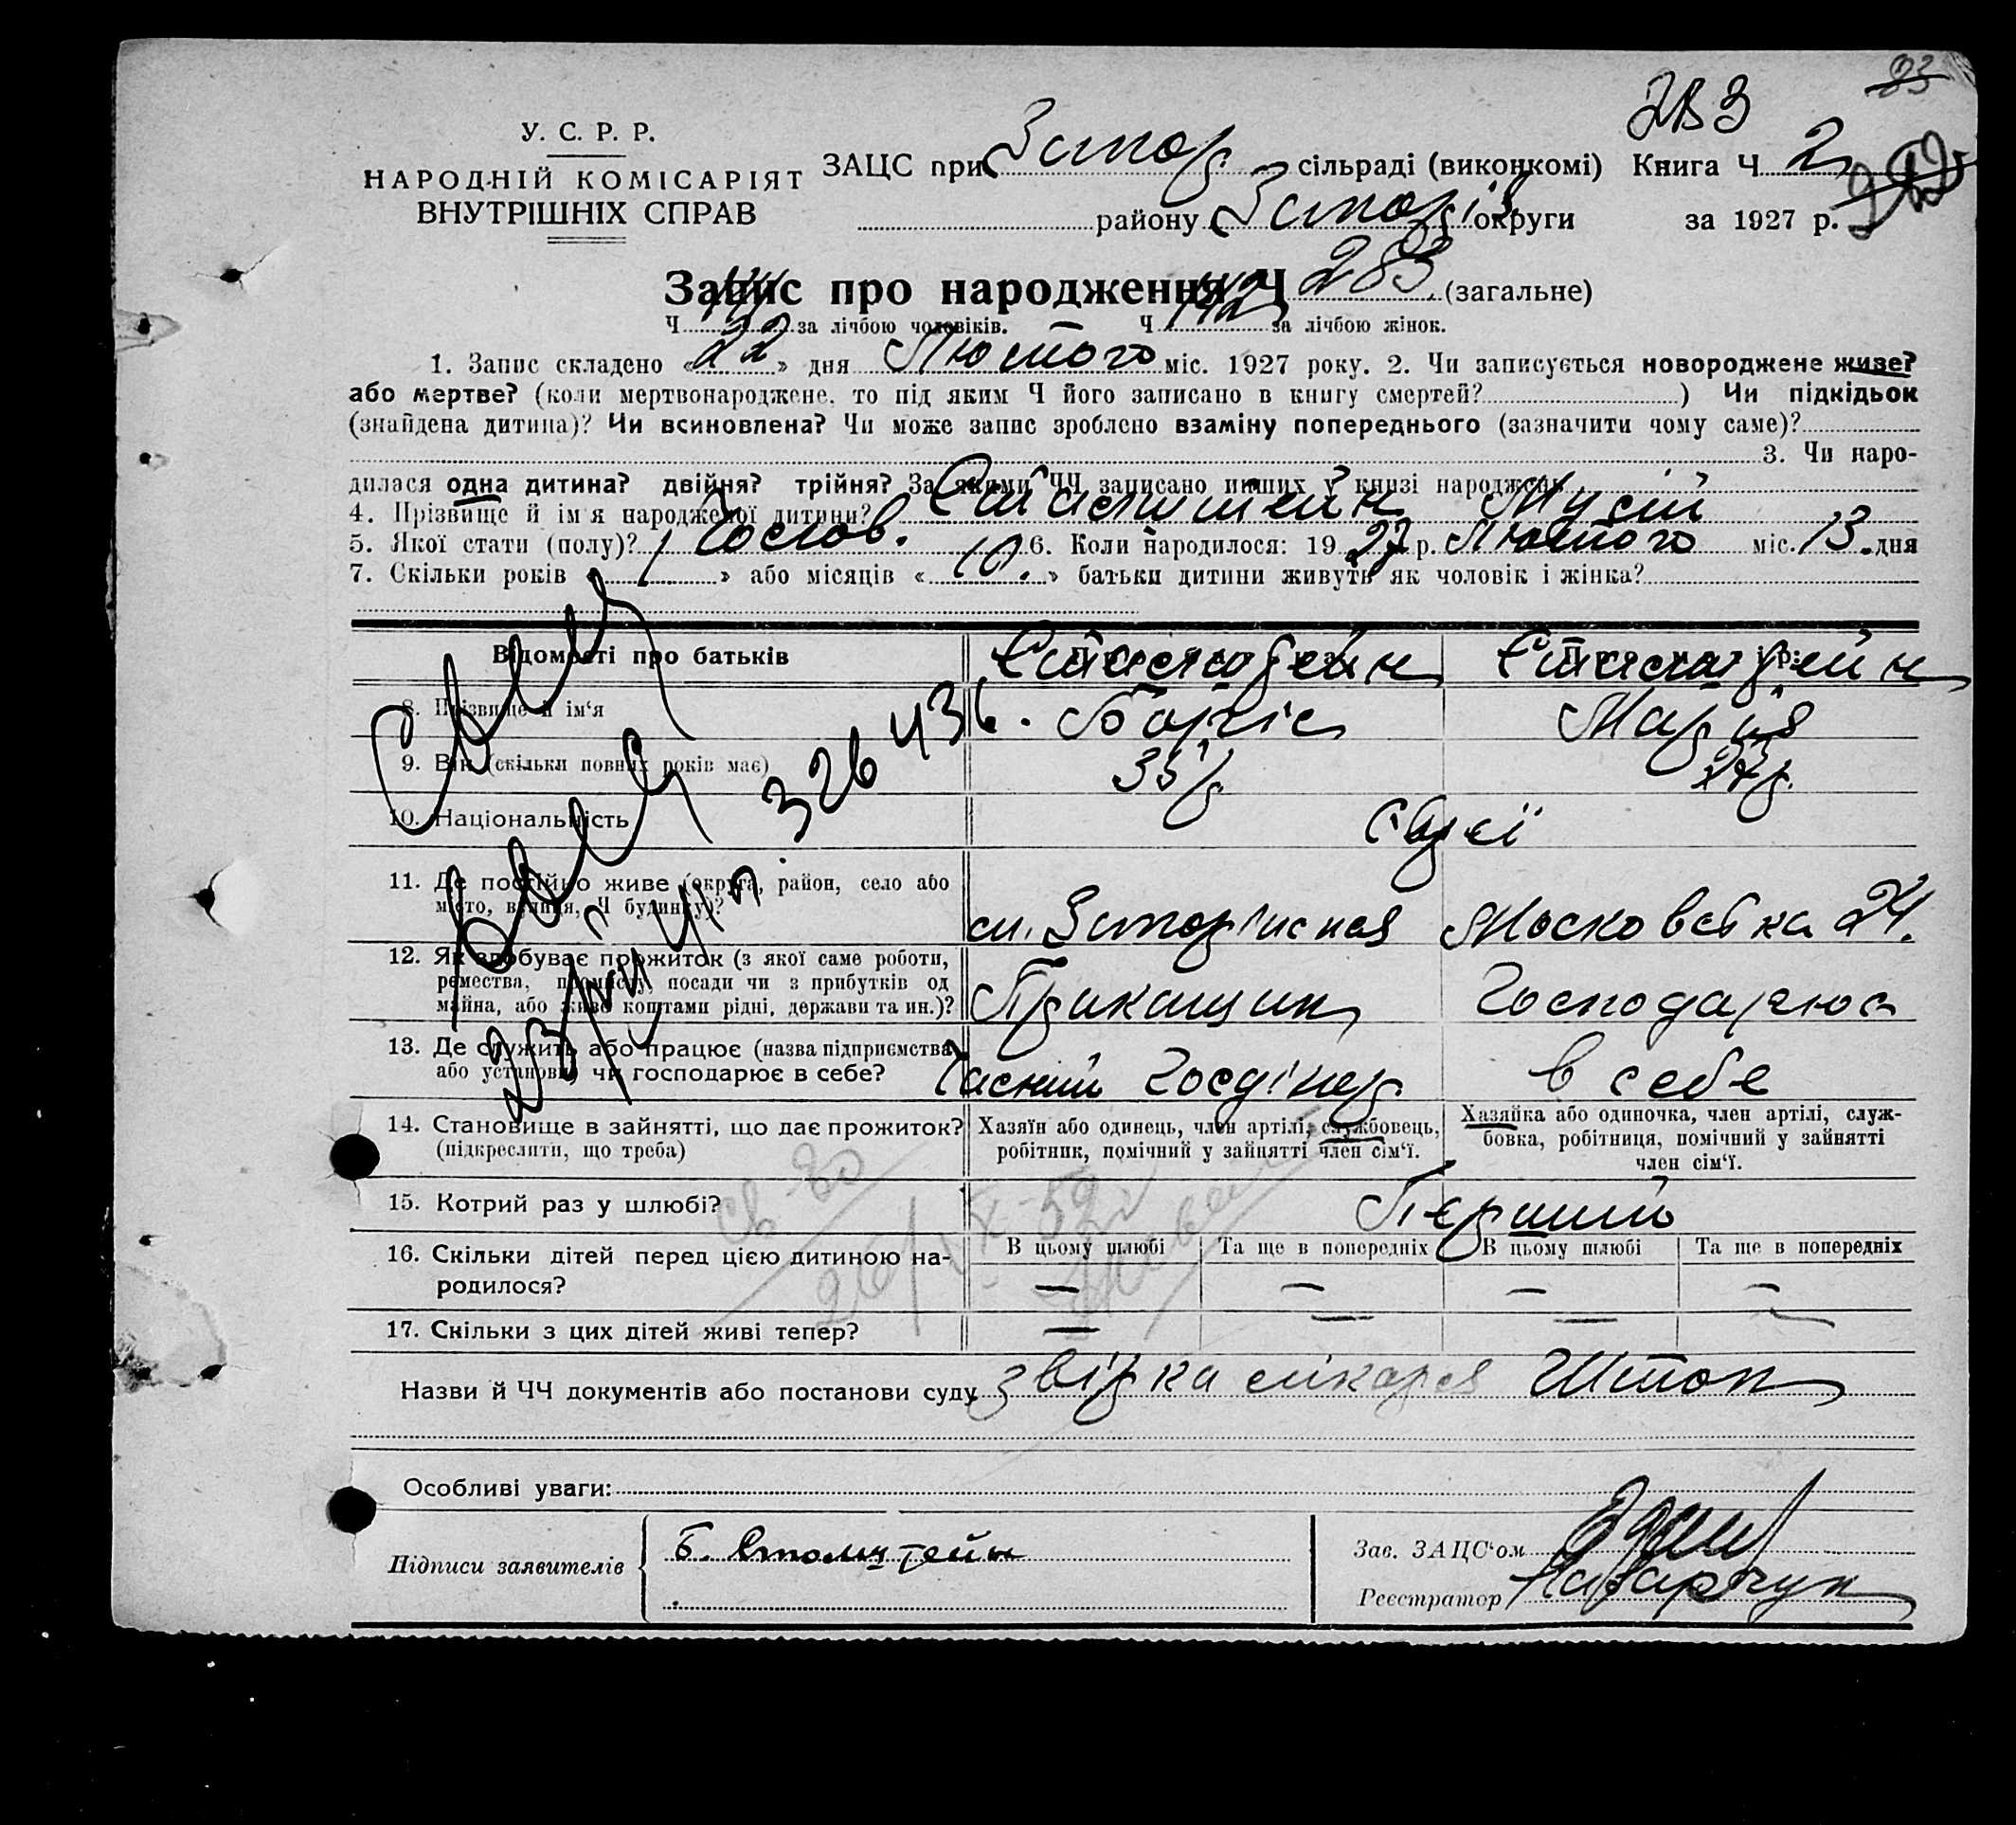 283
У. С. Р. Р.
НАРОДНІЙ КОМІСАРІЯТ
ВНУТРІШНІХ СПРАВ
ЗАЦС при Запор сільраді (виконкомі) Книга Ч 2
району Запоріз округи за 1927 р.
Запис про народження Ч 283 (загальне)
Ч за лічбою чоловіків. Ч 142 за лічбою жінок.
1. Запис складено «22» дня Лютого міс. 1927 року. 2. Чи записується новороджене живе?
або мертве? (коли мертвонароджене, то під яким Ч його записано в книгу смертей? ) Чи підкідьок
(знайдена дитина)? Чи всиновлена? Чи може запис зроблено взаміну попереднього (зазначити чому саме)?
3. Чи наро-
дилася одна дитина? двійня? трійня? За якими ЧЧ записано инших у книзі народжень
4. Прізвище й ім'я народженої дитини? Мусій
5. Якої стати (полу)? Чолов. 6. Коли народилося: 1927 р. Лютого міс. 13. дня
7. Скільки років « 1 » або місяців « 10. » батьки дитини живуть як чоловік і жінка?
Відомості про батьків
8. Прізвище й ім'я Борис Марія
9. Вік (скільки повних років має) 35 р 27 р.
10. Національність Євреї
11. Де постійно живе (округа, район, село або
місто, вулиця, Ч будинку)? Московська 24.
12. Як здобуває прожиток (з якої саме роботи,
ремества, промислу, посади чи з прибутків од
майна, або живе коштами рідні, держави та ин.)? Прикащик Господарює
13. Де служить або працює (назва підприємства
або установи) чи господарює в себе? в себе
14. Становище в зайнятті, що дає прожиток?
(підкреслити, що треба)
Хазяїн або одинець, член артілі, службовець,
робітник, помічний у зайнятті член сім'ї.
Хазяйка або одиночка, член артілі, служ-
бовка, робітниця, помічний у зайнятті
член сім'ї.
15. Котрий раз у шлюбі? Перший
16. Скільки дітей перед цією дитиною на-
родилося?
В цьому шлюбі Та ще в попередніх В цьому шлюбі Та ще в попередніх
— — — —
17. Скільки з цих дітей живі тепер? — — — —
Назви й ЧЧ документів або постанови суду звірка лікаря Шток
Особливі уваги:
Підписи заявителів
Зав. ЗАЦС'ом
Реєстратор